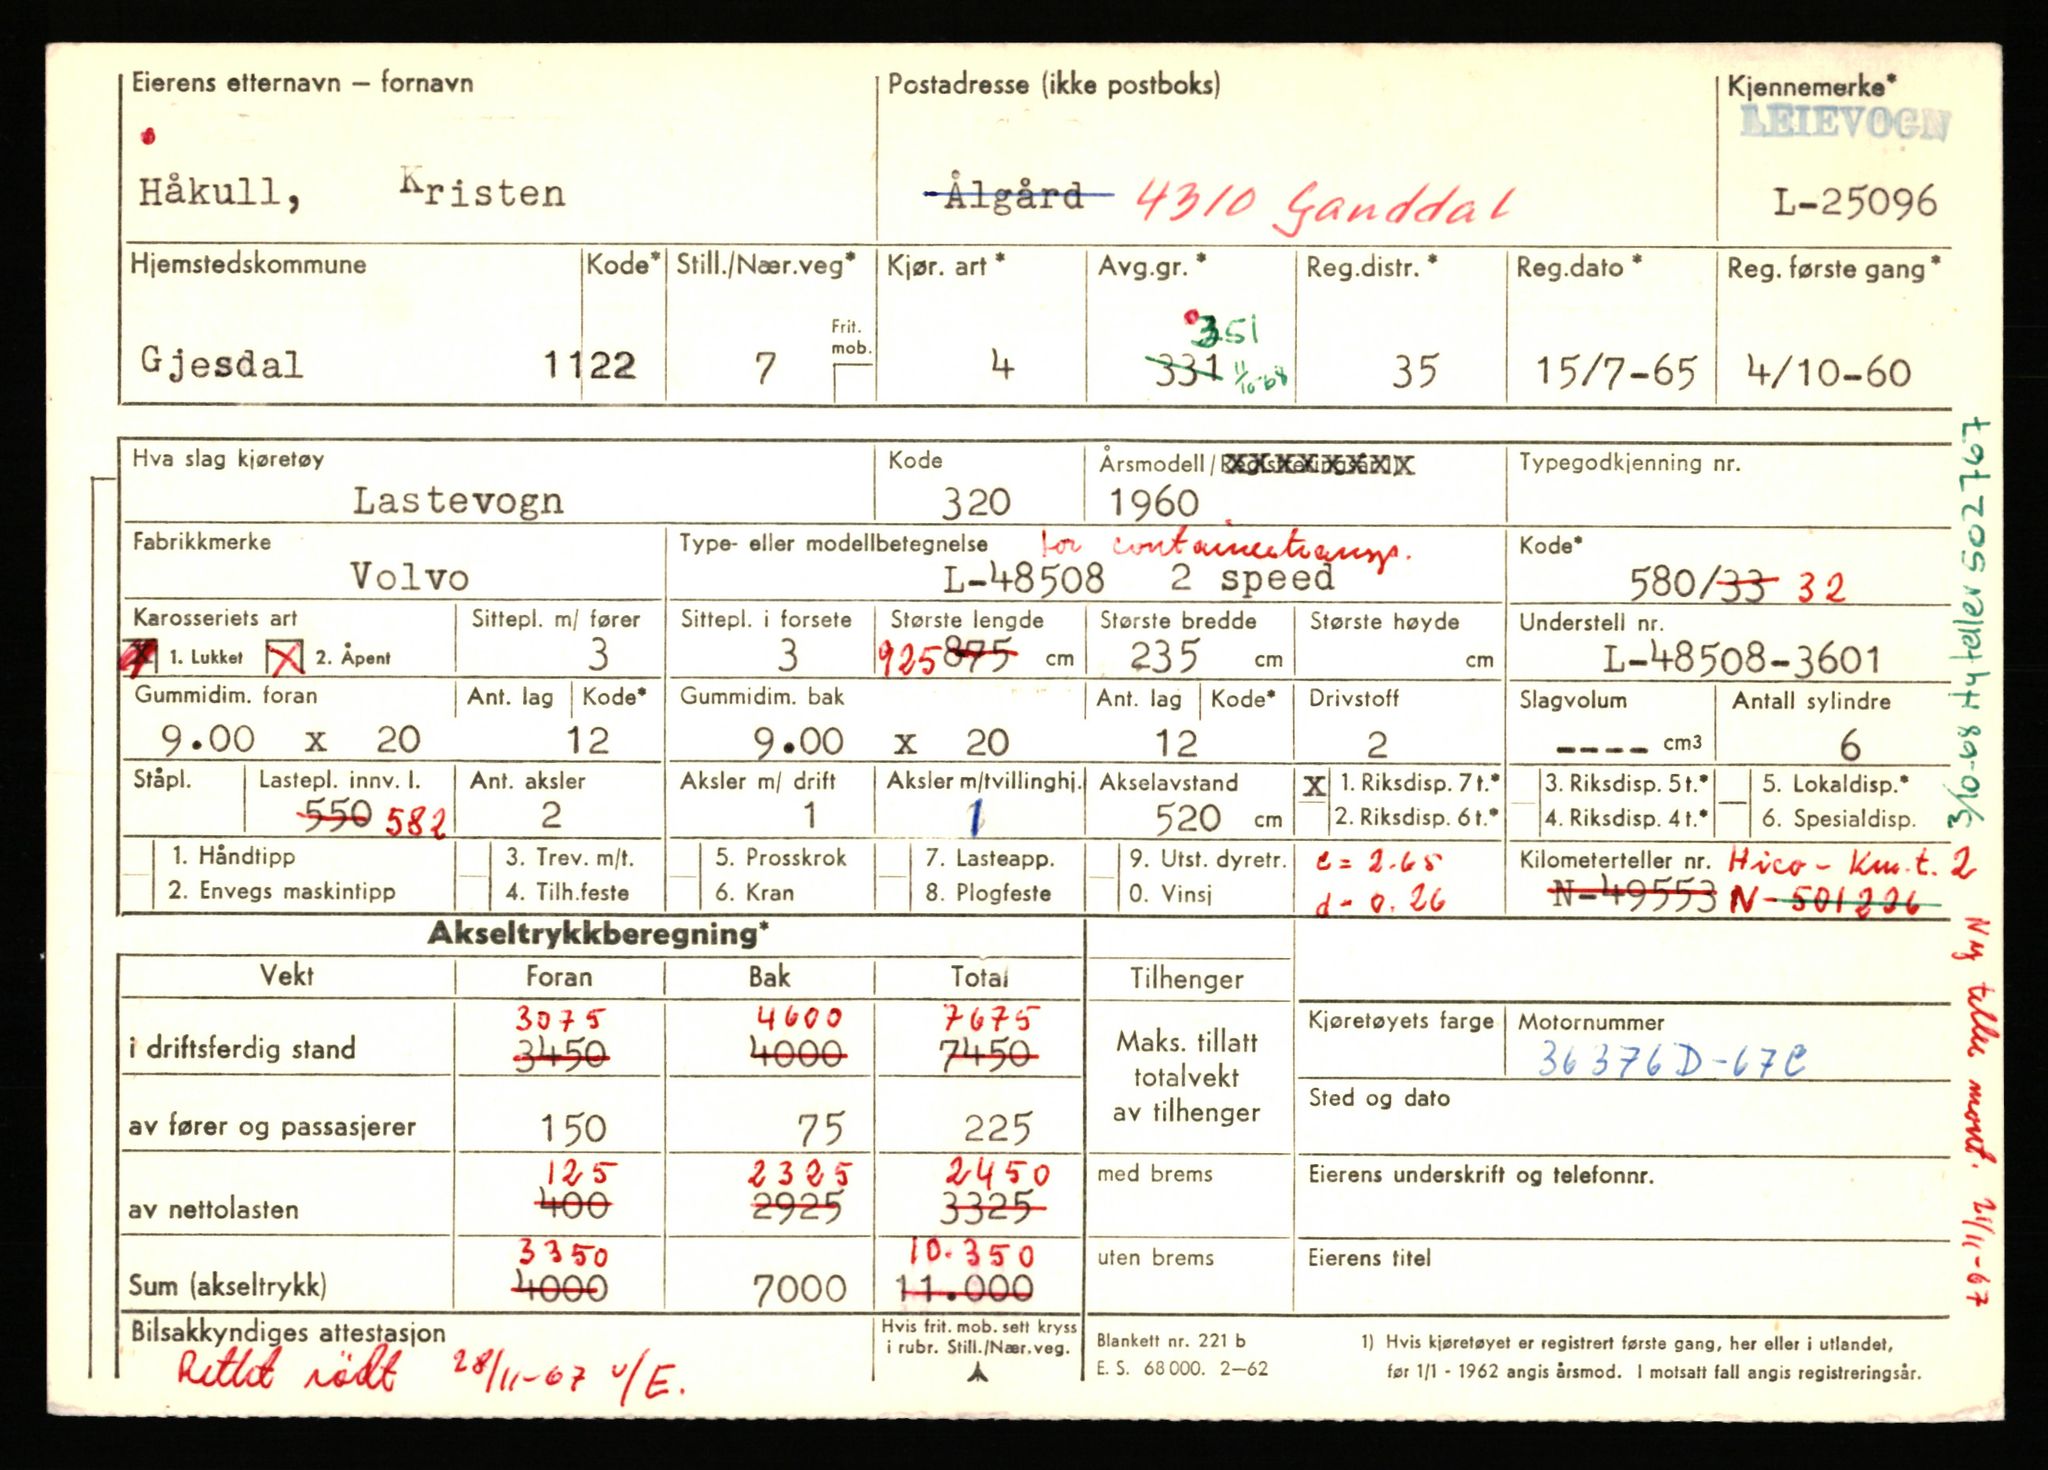 Eierens etternavn — fornavn
Postadresse (ikke postboks)
Kjennemerke*
LEIEVOGN
Håkull, Kristen
Ålgård 4310 Ganddal
L-25096
Hjemstedskommune Kode* Still./Nær.veg* Kjør. art* Avg.gr.* Reg.distr.* Reg.dato* Reg. første gang*
Frit. mob.
351
Gjesdal 1122 7 4 331 11/10-68 35 15/7-65 4/10-60
Hva slag kjøretøy Kode Årsmodell/ Typegodkjenning nr.
Lastevogn 320 1960
Fabrikkmerke Type- eller modellbetegnelse for containertransp. Kode*
Volvo L-48508 2 speed 580/33 32
Karosseriets art Sittepl. m/ fører Sittepl. i forsete Største lengde Største bredde Største høyde Understell nr.
X 1. Lukket X 2. Åpent 3 3 925 875 cm 235 cm cm L-48508-3601
Gummidim. foran Ant. lag Kode* Gummidim. bak Ant. lag Kode* Drivstoff Slagvolum Antall sylindre
9.00 x 20 12 9.00 x 20 12 2 ---- cm3 6
Ståpl. Lastepl. innv. l. Ant. aksler Aksler m/ drift Aksler m/tvillinghj. Akselavstand X 1. Riksdisp. 7 t.* 3. Riksdisp. 5 t.* 5. Lokaldisp.*
550 582 2 1 1 520 cm 2. Riksdisp. 6 t.* 4. Riksdisp. 4 t.* 6. Spesialdisp.
1. Håndtipp 3. Trev. m/t. 5. Prosskrok 7. Lasteapp. 9. Utst. dyretr. c = 2.65 Kilometerteller nr. Hico - Km.t. 2
2. Envegs maskintipp 4. Tilh.feste 6. Kran 8. Plogfeste 0. Vinsj d = 0.26 N-49553 N-501236
Akseltrykkberegning*
Vekt Foran Bak Total Tilhenger
3075 4600 7675
i driftsferdig stand 3450 4000 7450
Maks. tillatt
totalvekt
av tilhenger
Kjøretøyets farge Motornummer
36376D-67C
Sted og dato
av fører og passasjerer 150 75 225
125 2325 2450
av nettolasten 400 2925 3325
med brems Eierens underskrift og telefonnr.
3350 10.350
Sum (akseltrykk) 4000 7000 11.000
uten brems Eierens titel
Bilsakkyndiges attestasjon
Rettet rødt 28/11-67 v/E.
Hvis frit. mob. sett kryss
i rubr. Still./Nær.veg.
Blankett nr. 221 b
E. S. 68 000. 2—62
1) Hvis kjøretøyet er registrert første gang, her eller i utlandet,
før 1/1 - 1962 angis årsmod. I motsatt fall angis registreringsår.
3/10-68 Hy teller 502767
Ny teller mont. 21/11-67